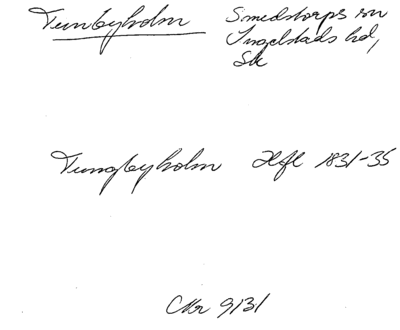 Tunbyholm Smedstorps sn
Ingelstads hd,
Sk
Tungbyholm Hfl 1831-35
CNr 9131